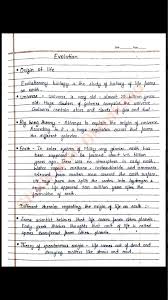 Evolution
• Origin of life
Evolutionary biology is the study of history of life forms
on earth.
• Universe - Universe is very old - almost 20 billion years
old. Huge clusters of galaxies comprise the universe
Galaxies contain stars and clouds of gas and dust.
• Big bang theory - Attempts to explain the origin of universe.
According to it - a huge explosion occurs but forms
the
• Earth - In solar system of Milky way galaxy, earth has
been supposed to be formed about 4.5 billion
years ago. There was no atmosphere on early
earth. Water vapours, methane, CO2 and ammonia
released from molten mass covered the earth surface.
The UV rays from sun split the water into hydrogen &
oxygen. Life appeared 500 million years after the
formation of earth.
• Different theories regarding the origin of life on earth :-
• Some scientist believe that life came from other planets.
Early greek thinkers thought that unit of life is called
spores transferred from other planets.
• Theory of spontaneous origin - Life comes out of dead and
decaying matter like straw and mud.